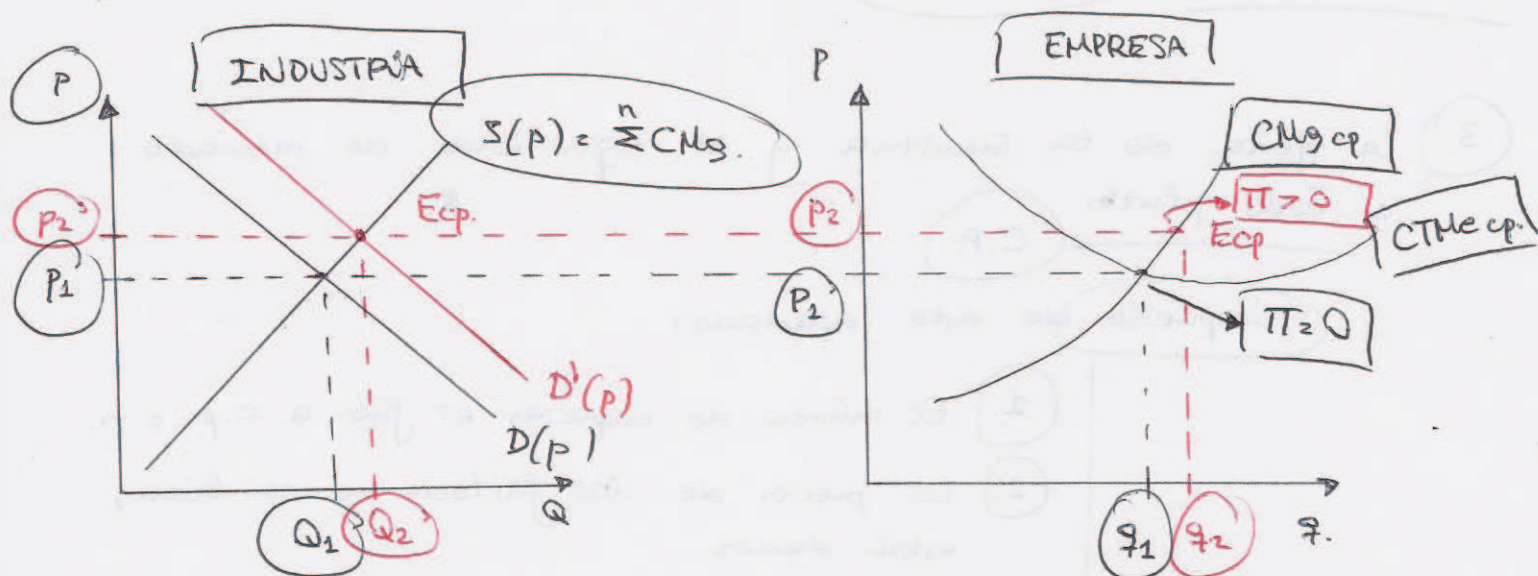 INDUSTRIA
P
S(p) = n Σ CMg.
P2'
P1
Ecp.
D'(p)
D(p)
Q
Q1
Q2'
EMPRESA
P
CMg cp
P2
π > 0
Ecp
CTMe cp.
P1'
π = 0
q1
q2
q.